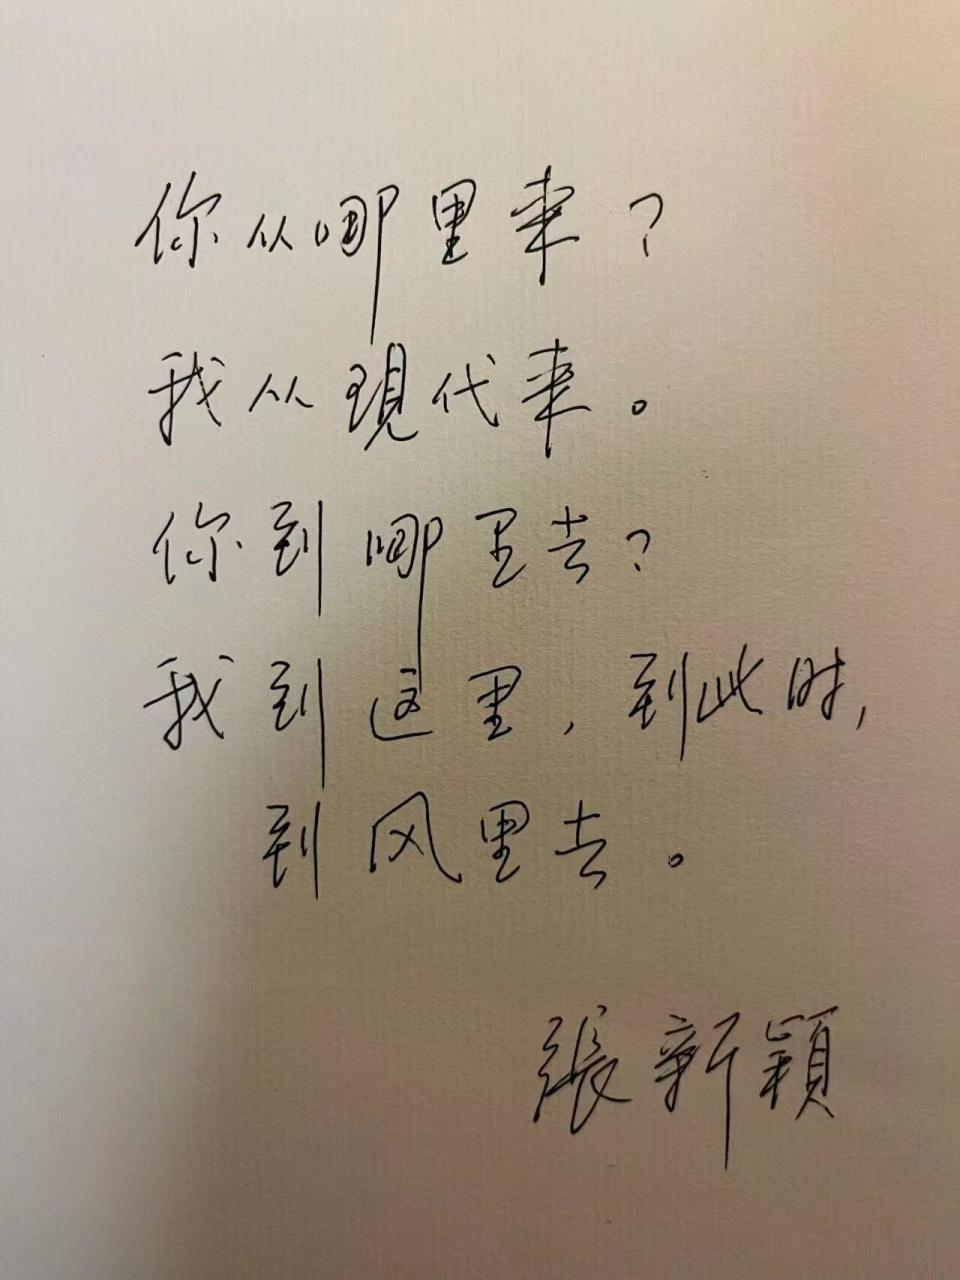 你从哪里来？
我从現代来。
你到哪里去？
我到这里，到此时，
到风里去。
張新穎